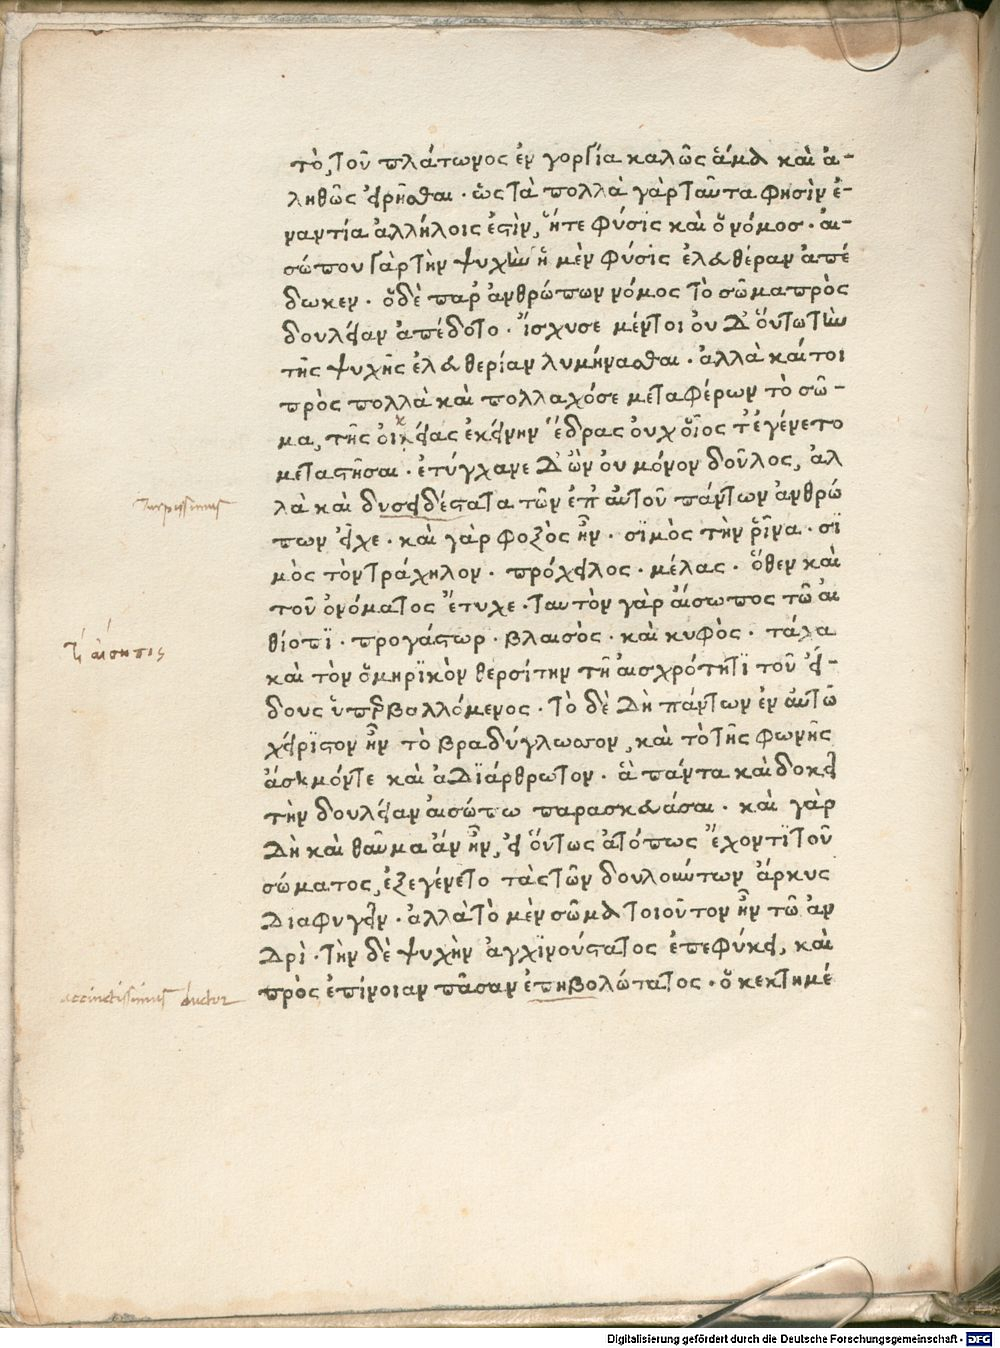 τὸ, τοῦ πλάτωνος ἐν γοργία καλῶς ἅμα καὶ ἀ-
ληθῶς εἰρῆσθαι · ὡς τὰ πολλὰ γὰρ ταῦτα φησὶν ἐ-
ναντία ἀλλήλοις ἐστὶν, ἥτε φύσϊς καὶ ὁ νόμος · αἰ-
σώπου γὰρ τὴν ψυχὴν ἡ μὲν φύσϊς ἐλευθέραν ἀπέ
δωκεν · ὁ δὲ παρ' ἀνθρώπων νόμος τὸ σῶμα πρὸς
δουλείαν ἀπέδοτο · ἴσχυσε μέντοι οὐ δ' ὅυτω τὴν
τῆς ψυχῆς ἐλευθερίαν λυμήνασθαι · ἀλλὰ καίτοι
πρὸς πολλὰ καὶ πολλαχόσε μεταφέρων τὸ σῶ-
μα, τῆς οἰκείας ἐκείνην ἕδρας οὐχ οἷος τ' ἐγένετο
μεταστῆσαι · ἐτύγχανε δ' ὢν οὐ μόνον δοῦλος, ἀλ
λὰ καὶ δυσειδέστατα τῶν ἐπ' αὐτοῦ πάντων ἀνθρώ
turpissimus
πων εἶχε · καὶ γὰρ φοξὸς ἦν · σϊμὸς τὴν ῥῖνα · σϊ
μὸς τὸν τράχηλον · πρόχειλος · μέλας · ὅθεν καὶ
τοῦ ὀνόματος ἔτυχε · ταυτὸν γὰρ αἴσωπος τῶ αἰ
θίοπϊ · προγάστωρ · βλαισὸς · καὶ κυφὸς · τάχα
καὶ τὸν ὁμηρϊκὸν θερσίτην τῆ αἰσχρότητϊ τοῦ εἴ-
δους ὑπερβαλλόμενος · τὸ δὲ δὴ πάντων ἐν αὐτῶ
χείρϊστον ἦν τὸ βραδύγλωσσον, καὶ τὸ τῆς φωνῆς
ἄσημόν τε καὶ ἀδϊάρθρωτον · ἃ πάντα καὶ δοκεῖ
τὴν δουλείαν αἰσώπω παρασκευάσαι · καὶ γὰρ
δὴ καὶ θαῦμα ἂν ἦν, εἰ ὅυτως ἀτόπως ἔχοντϊ τοῦ
σώματος, ἐξεγένετο τὰς τῶν δουλούντων ἄρκυς
διαφυγεῖν · ἀλλὰ τὸ μὲν σῶμα τοιοῦτον ἦν τῶ ἀν
δρὶ · τὴν δὲ ψυχὴν ἀγχϊνούστατος ἐπεφύκει, καὶ
πρὸς ἐπίνοιαν πᾶσαν ἐπηβολώτατος · ὁ κεκτημέ
accinctissimus auctor
Digitalisierung gefördert durch die Deutsche Forschungsgemeinschaft - DFG